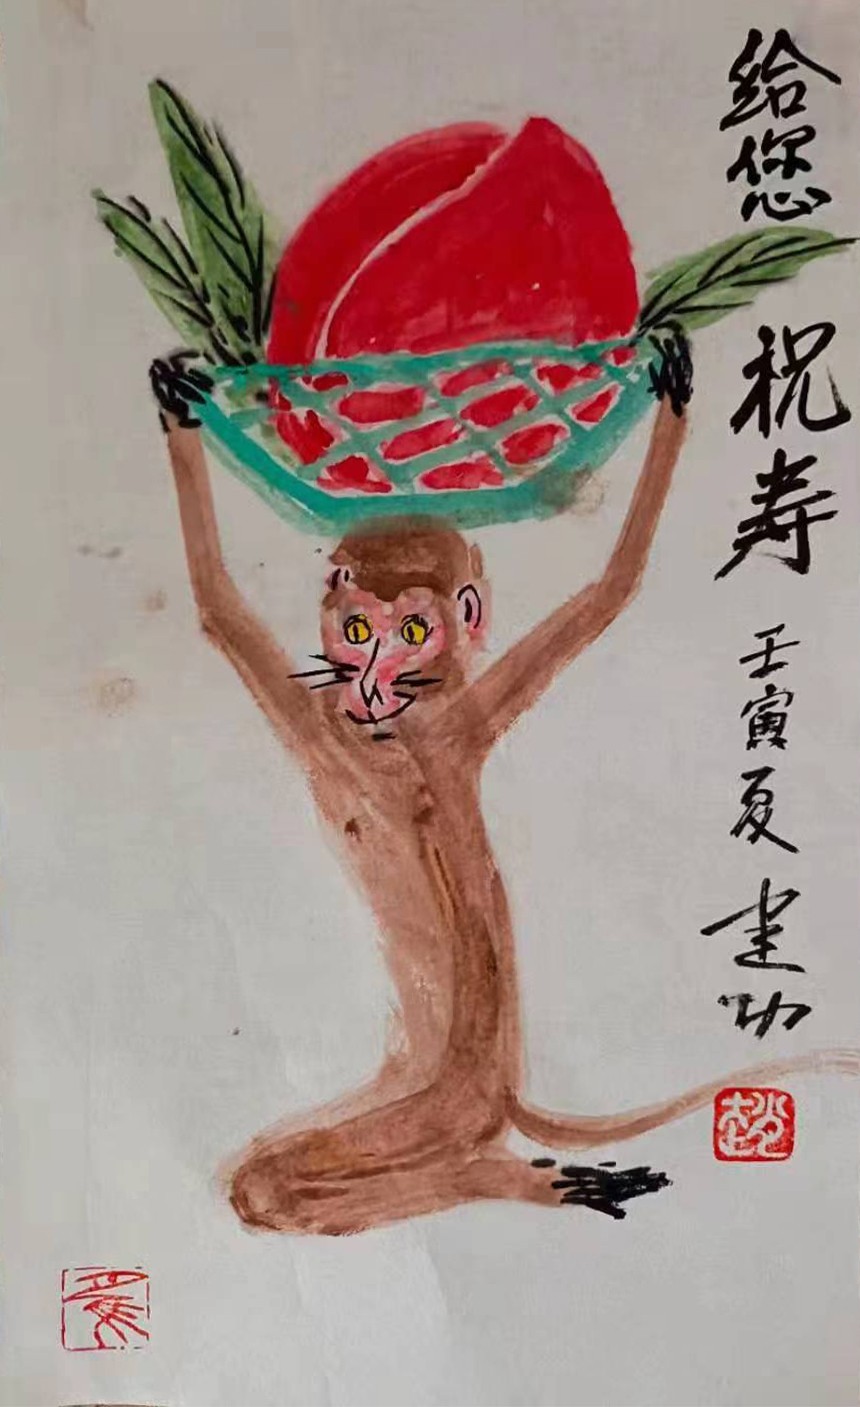 给您 祝寿 壬寅夏 建功
趙